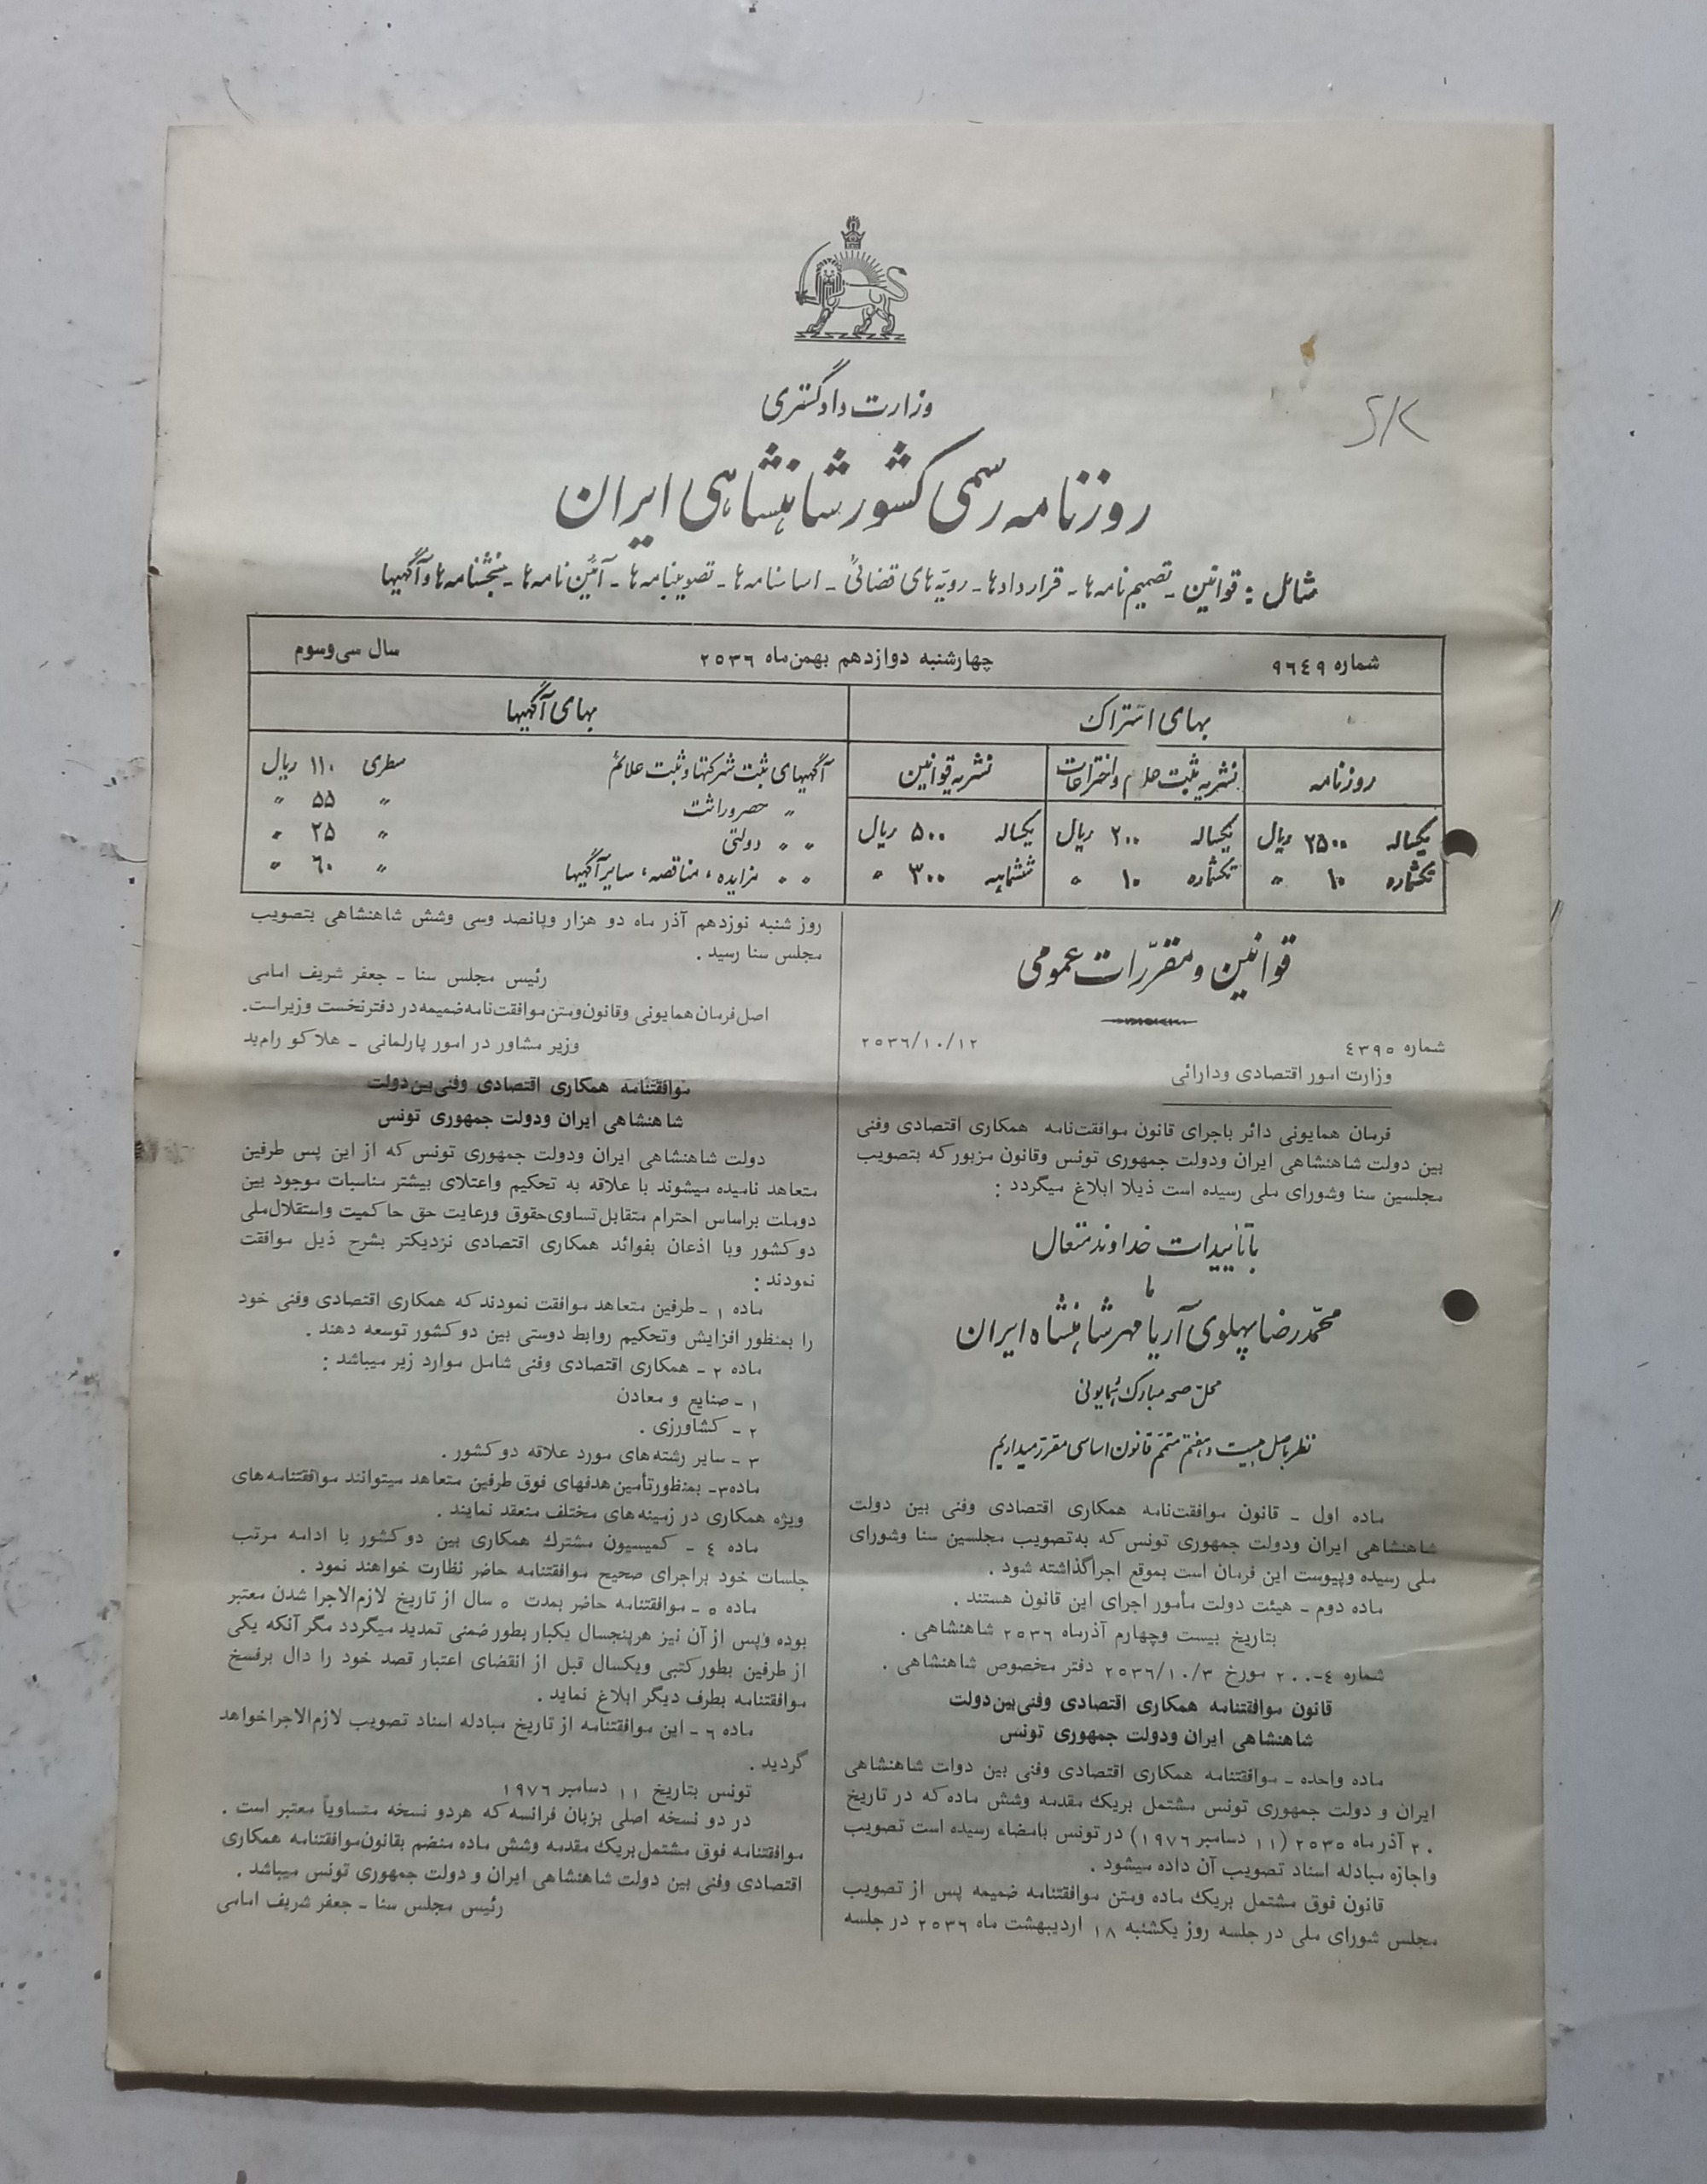 وزارت دادگستری
روزنامه رسمی کشور شاهنشاهی ایران
شامل : قوانین - تصمیم نامه ها - قراردادها - رویّه های قضائی - اساسنامه ها - تصویبنامه ها - آئین نامه ها - بخشنامه ها و آگهیها
شماره ۹٦٤۹ چهارشنبه دوازدهم بهمن ماه ۲۵۳٦ سال سی و سوم
بهای اشتراک
روزنامه نشریه ثبت علائم و اختراعات نشریه قوانین
یکساله ۲۵۰۰ ریال یکساله ۲۰۰ ریال یکساله ۵۰۰ ریال
تکشماره ۱۰ » تکشماره ۱۰ » ششماهه ۳۰۰ »
بهای آگهیها
آگهیهای ثبت شرکتها و ثبت علائم سطری ۱۱۰ ریال
» حصر وراثت » ۵۵ »
» » دولتی » ۲۵ »
» » مزایده ، مناقصه ، سایر آگهیها » ٦۰ »
قوانین و مقرّرات عمومی
شماره ٤۳۹۵ ۲۵۳٦/۱۰/۱۲
وزارت امور اقتصادی ودارائی
فرمان همایونی دائر باجرای قانون موافقت‌نامه همکاری اقتصادی وفنی
بین دولت شاهنشاهی ایران ودولت جمهوری تونس وقانون مزبور که بتصویب
مجلسین سنا وشورای ملی رسیده است ذیلا ابلاغ میگردد :
با تأییدات خداوند متعال
ما
محمّد رضا پهلوی آریامهر شاهنشاه ایران
محلّ صحه مبارک همایونی
نظر باصل بیست و هفتم متمّم قانون اساسی مقرّر میداریم
ماده اول - قانون موافقت‌نامه همکاری اقتصادی وفنی بین دولت
شاهنشاهی ایران ودولت جمهوری تونس که به‌تصویب مجلسین سنا وشورای
ملی رسیده وپیوست این فرمان است بموقع اجراگذاشته شود .
ماده دوم - هیئت دولت مأمور اجرای این قانون هستند .
بتاریخ بیست وچهارم آذرماه ۲۵۳٦ شاهنشاهی .
شماره ٤-۲۰۰ مورخ ۲۵۳٦/۱۰/۳ دفتر مخصوص شاهنشاهی .
قانون موافقتنامه همکاری اقتصادی وفنی بین دولت
شاهنشاهی ایران ودولت جمهوری تونس
ماده واحده - موافقتنامه همکاری اقتصادی وفنی بین دوات شاهنشاهی
ایران و دولت جمهوری تونس مشتمل بریک مقدمه وشش ماده که در تاریخ
۲۰ آذر ماه ۲۵۳۵ (۱۱ دسامبر ۱۹۷٦) در تونس بامضاء رسیده است تصویب
واجازه مبادله اسناد تصویب آن داده میشود .
قانون فوق مشتمل بریک ماده ومتن موافقتنامه ضمیمه پس از تصویب
مجلس شورای ملی در جلسه روز یکشنبه ۱۸ اردیبهشت ماه ۲۵۳٦ در جلسه
روز شنبه نوزدهم آذر ماه دو هزار وپانصد وسی وشش شاهنشاهی بتصویب
مجلس سنا رسید .
رئیس مجلس سنا - جعفر شریف امامی
اصل فرمان همایونی وقانون ومتن موافقت‌نامه ضمیمه در دفتر نخست وزیر است.
وزیر مشاور در امور پارلمانی - هلاکو رامبد
موافقتنامه همکاری اقتصادی وفنی بین دولت
شاهنشاهی ایران ودولت جمهوری تونس
دولت شاهنشاهی ایران ودولت جمهوری تونس که از این پس طرفین
متعاهد نامیده میشوند با علاقه به تحکیم واعتلای بیشتر مناسبات موجود بین
دوملت براساس احترام متقابل تساوی حقوق ورعایت حق حاکمیت واستقلال ملی
دو کشور وبا اذعان بفوائد همکاری اقتصادی نزدیکتر بشرح ذیل موافقت
نمودند :
ماده ۱ - طرفین متعاهد موافقت نمودند که همکاری اقتصادی وفنی خود
را بمنظور افزایش وتحکیم روابط دوستی بین دو کشور توسعه دهند .
ماده ۲ - همکاری اقتصادی وفنی شامل موارد زیر میباشد :
۱ - صنایع و معادن
۲ - کشاورزی .
۳ - سایر رشته‌های مورد علاقه دو کشور .
ماده ۳ - بمنظور تأمین هدفهای فوق طرفین متعاهد میتوانند موافقتنامه‌های
ویژه همکاری در زمینه‌های مختلف منعقد نمایند .
ماده ٤ - کمیسیون مشترک همکاری بین دو کشور با ادامه مرتب
جلسات خود براجرای صحیح موافقتنامه حاضر نظارت خواهند نمود .
ماده ۵ - موافقتنامه حاضر بمدت ۵ سال از تاریخ لازم‌الاجرا شدن معتبر
بوده وپس از آن نیز هرپنجسال یکبار بطور ضمنی تمدید میگردد مگر آنکه یکی
از طرفین بطور کتبی ویکسال قبل از انقضای اعتبار قصد خود را دال برفسخ
موافقتنامه بطرف دیگر ابلاغ نماید .
ماده ٦ - این موافقتنامه از تاریخ مبادله اسناد تصویب لازم‌الاجرا خواهد
گردید .
تونس بتاریخ ۱۱ دسامبر ۱۹۷٦
در دو نسخه اصلی بزبان فرانسه که هردو نسخه متساویاً معتبر است .
موافقتنامه فوق مشتمل بریک مقدمه وشش ماده منضم بقانون موافقتنامه همکاری
اقتصادی وفنی بین دولت شاهنشاهی ایران و دولت جمهوری تونس میباشد .
رئیس مجلس سنا - جعفر شریف امامی